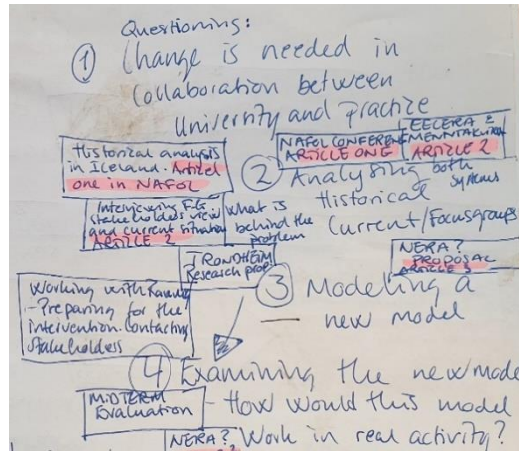 Questioning:
① Change is needed in
Collaboration between
University and practice
Historical analysis
in Iceland. Articel
one in NAFOL
NAFOL CONFEREN
ARTICLE ONE
EECERA ?
ARTICLE 2
② Analysing both
systems
Historical
Current/Focusgroups
Interviewing F.G
stakeholders view
and current situation
ARTICLE 2
What is
behind the
problem
TRONDHEIM
Research prop
NERA?
PROPOSAL
ARTICLE 3
③ Modeling a
new model
Working with
- Preparing for the
intervention. Contacting
Stakeholders
④ Examining the new mode
MIDTERM
Evaluation
- How would this model
NERA?
Work in real activity?